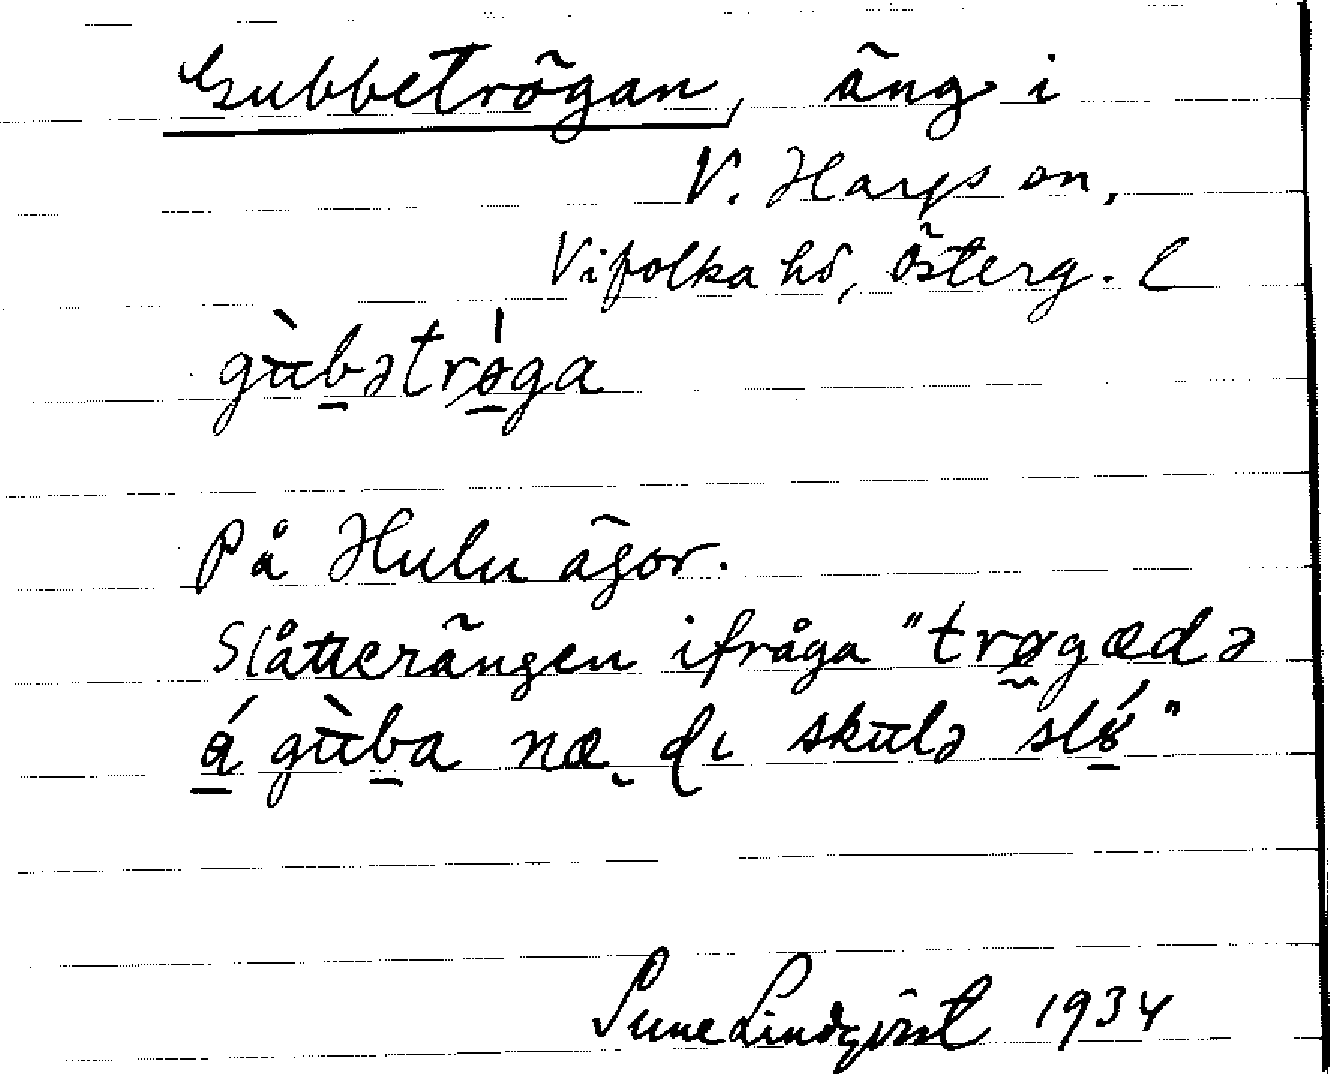 Gubbetrögan, äng i
V. Harps sn,
Vifolka hd, Österg. l
gùbətrǿga
På Hulu ägor.
Slåtterängen ifråga "trøgædə
á gùba næ di skulə sló"
Sune Lindqvist 1934